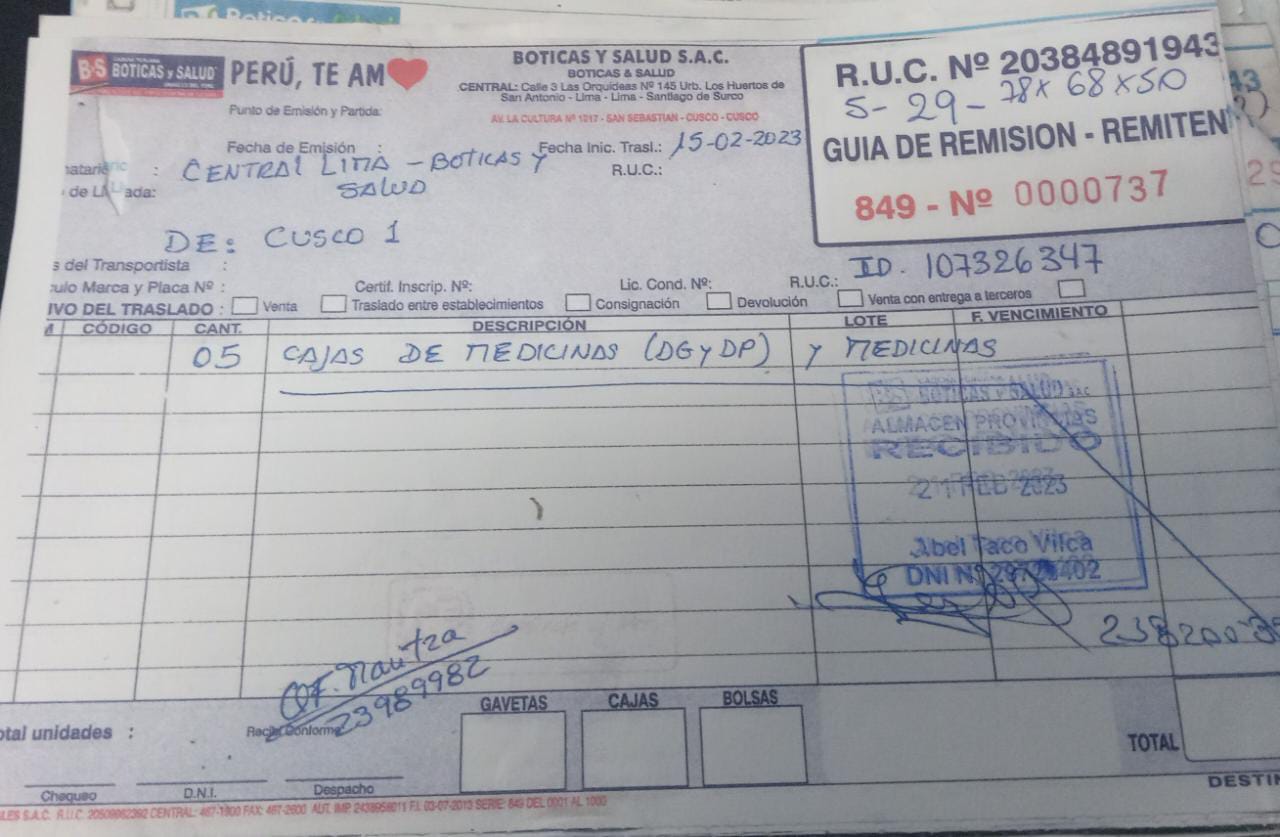 B•S BOTICAS Y SALUD
PERÚ, TE AM
BOTICAS Y SALUD S.A.C.
BOTICAS & SALUD
CENTRAL: Calle 3 Las Orquideas Nº 145 Urb. Los Huertos de
San Antonio - Lima - Lima - Santiago de Surco
AV. LA CULTURA Nº 1017 - SAN SEBASTIAN - CUSCO - CUSCO
R.U.C. Nº 20384891943
5-29-78x68x50
GUIA DE REMISION - REMITEN
849 - Nº 0000737
Punto de Emisión y Partida:
Fecha de Emisión :
Fecha Inic. Trasl.: 15-02-2023
: CENTRAL LIMA - BOTICAS Y
SALUD
R.U.C.:
DE: CUSCO 1
s del Transportista :
ulo Marca y Placa Nº :
Certif. Inscrip. Nº:
Lic. Cond. Nº:
R.U.C.:
ID. 107326347
IVO DEL TRASLADO : Venta Traslado entre establecimientos Consignación Devolución Venta con entrega a terceros
CÓDIGO CANT. DESCRIPCIÓN LOTE F. VENCIMIENTO
05 CAJAS DE MEDICINAS (DG y DP) y MEDICINAS
BOTICAS Y SALUD SAC
ALMACEN PROVINCIAS
RECIBIDO
FEB 2023
Abel Taco Vilca
DNI Nº
QF. Nautza
23989982
otal unidades :
Recibí Conforme
GAVETAS CAJAS BOLSAS
TOTAL
Chequeo D.N.I. Despacho
DESTIN